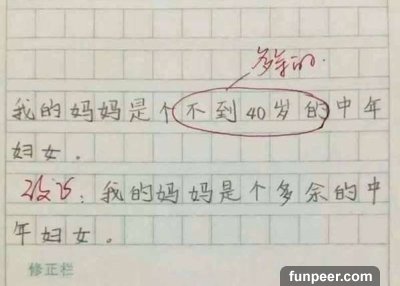 多余的.
我的妈妈是个不到40岁的中年
妇女.
改巧:我的妈妈是个多余的中
年妇女。
修正栏
funpeer.com